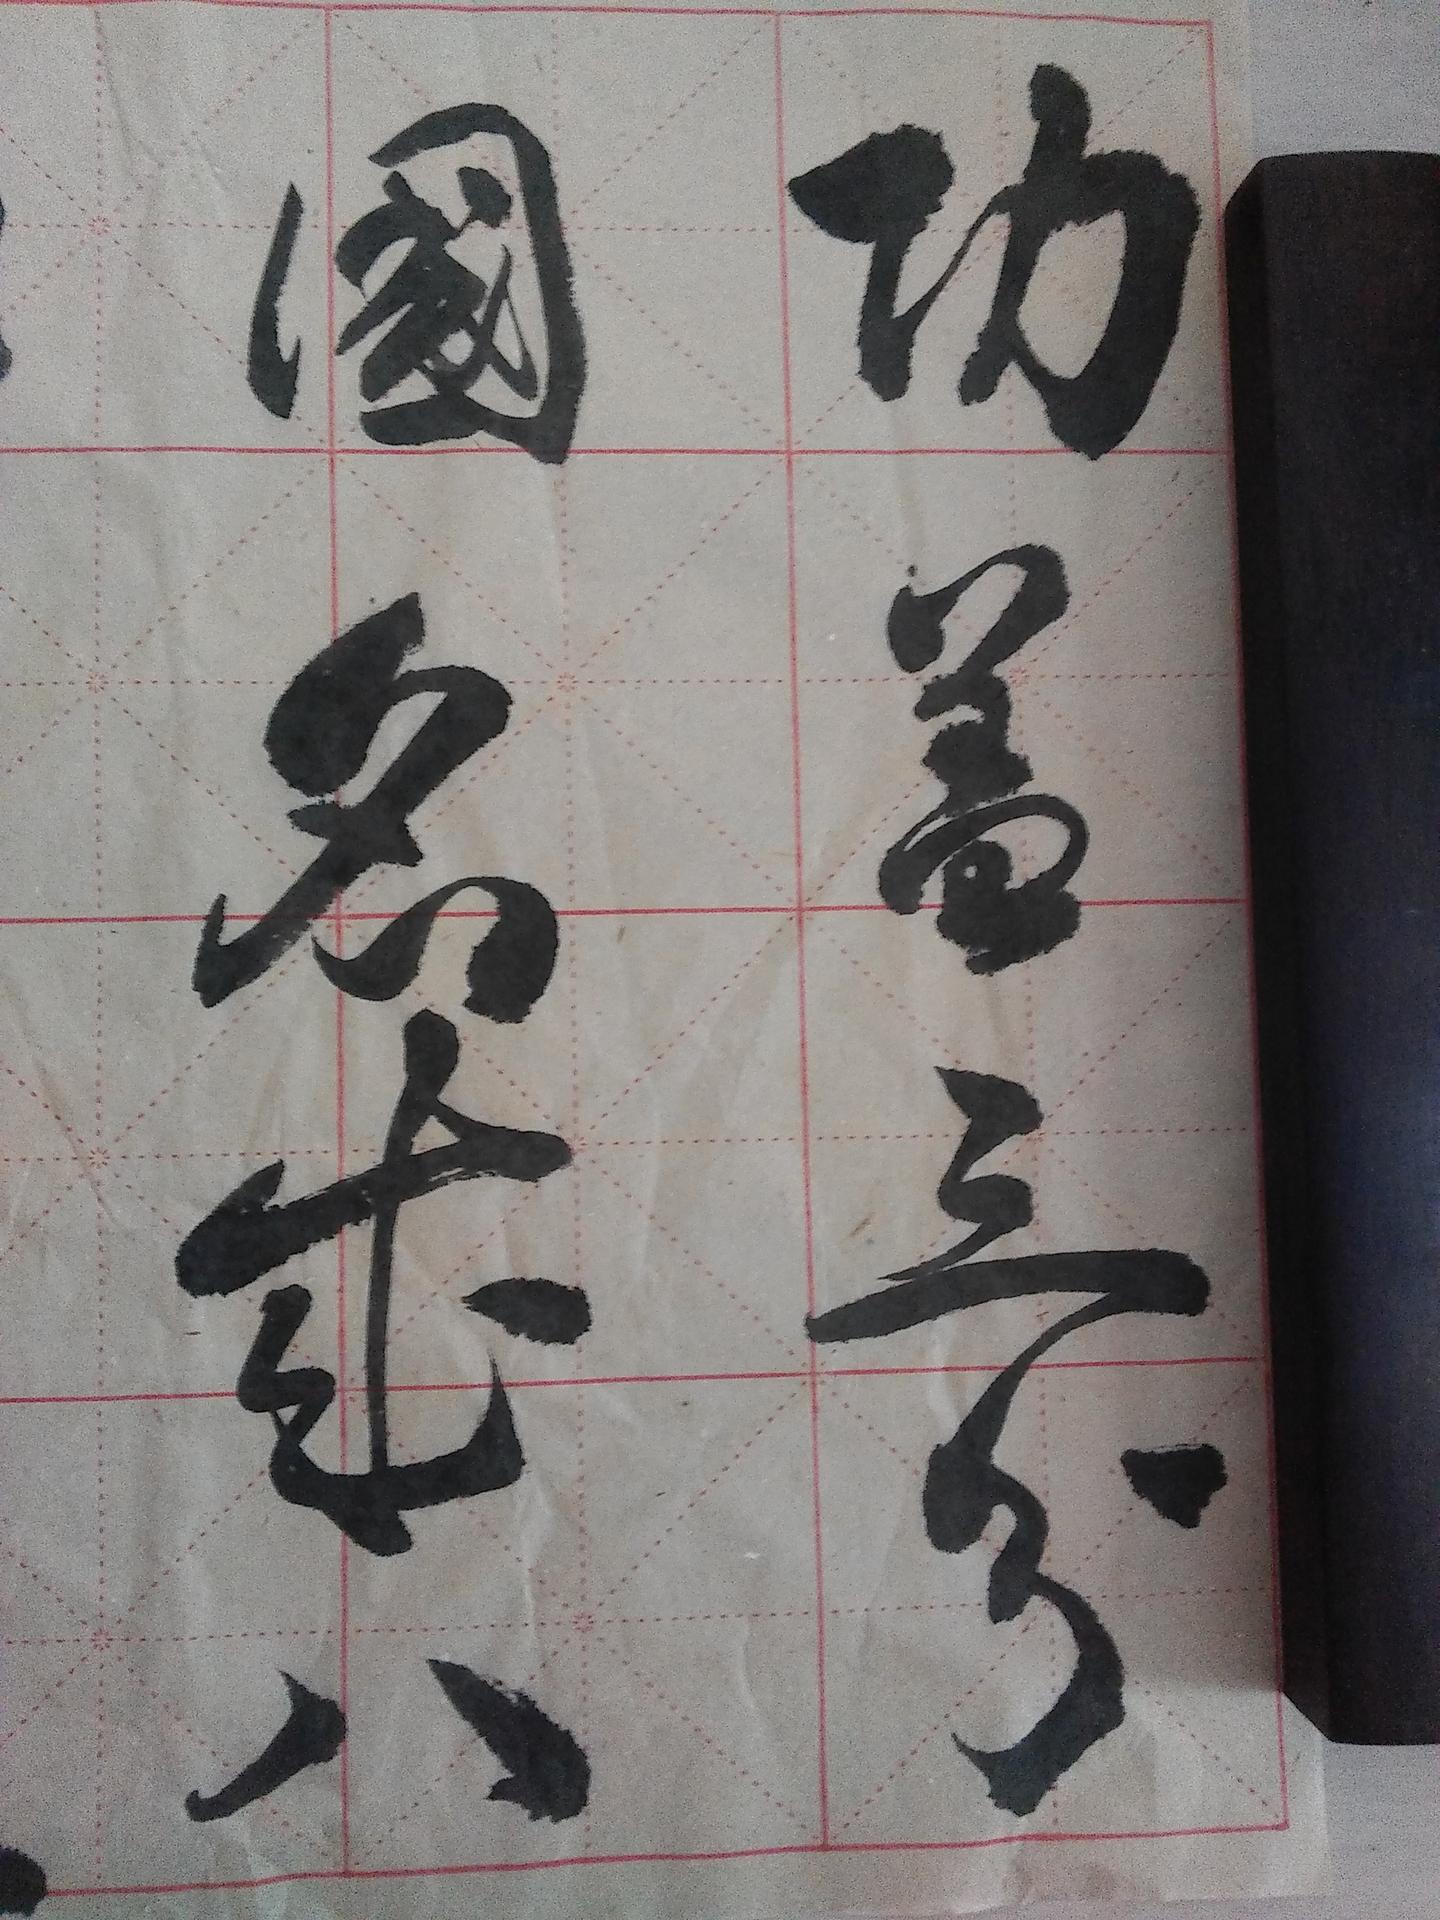 功盖三分
國名成八